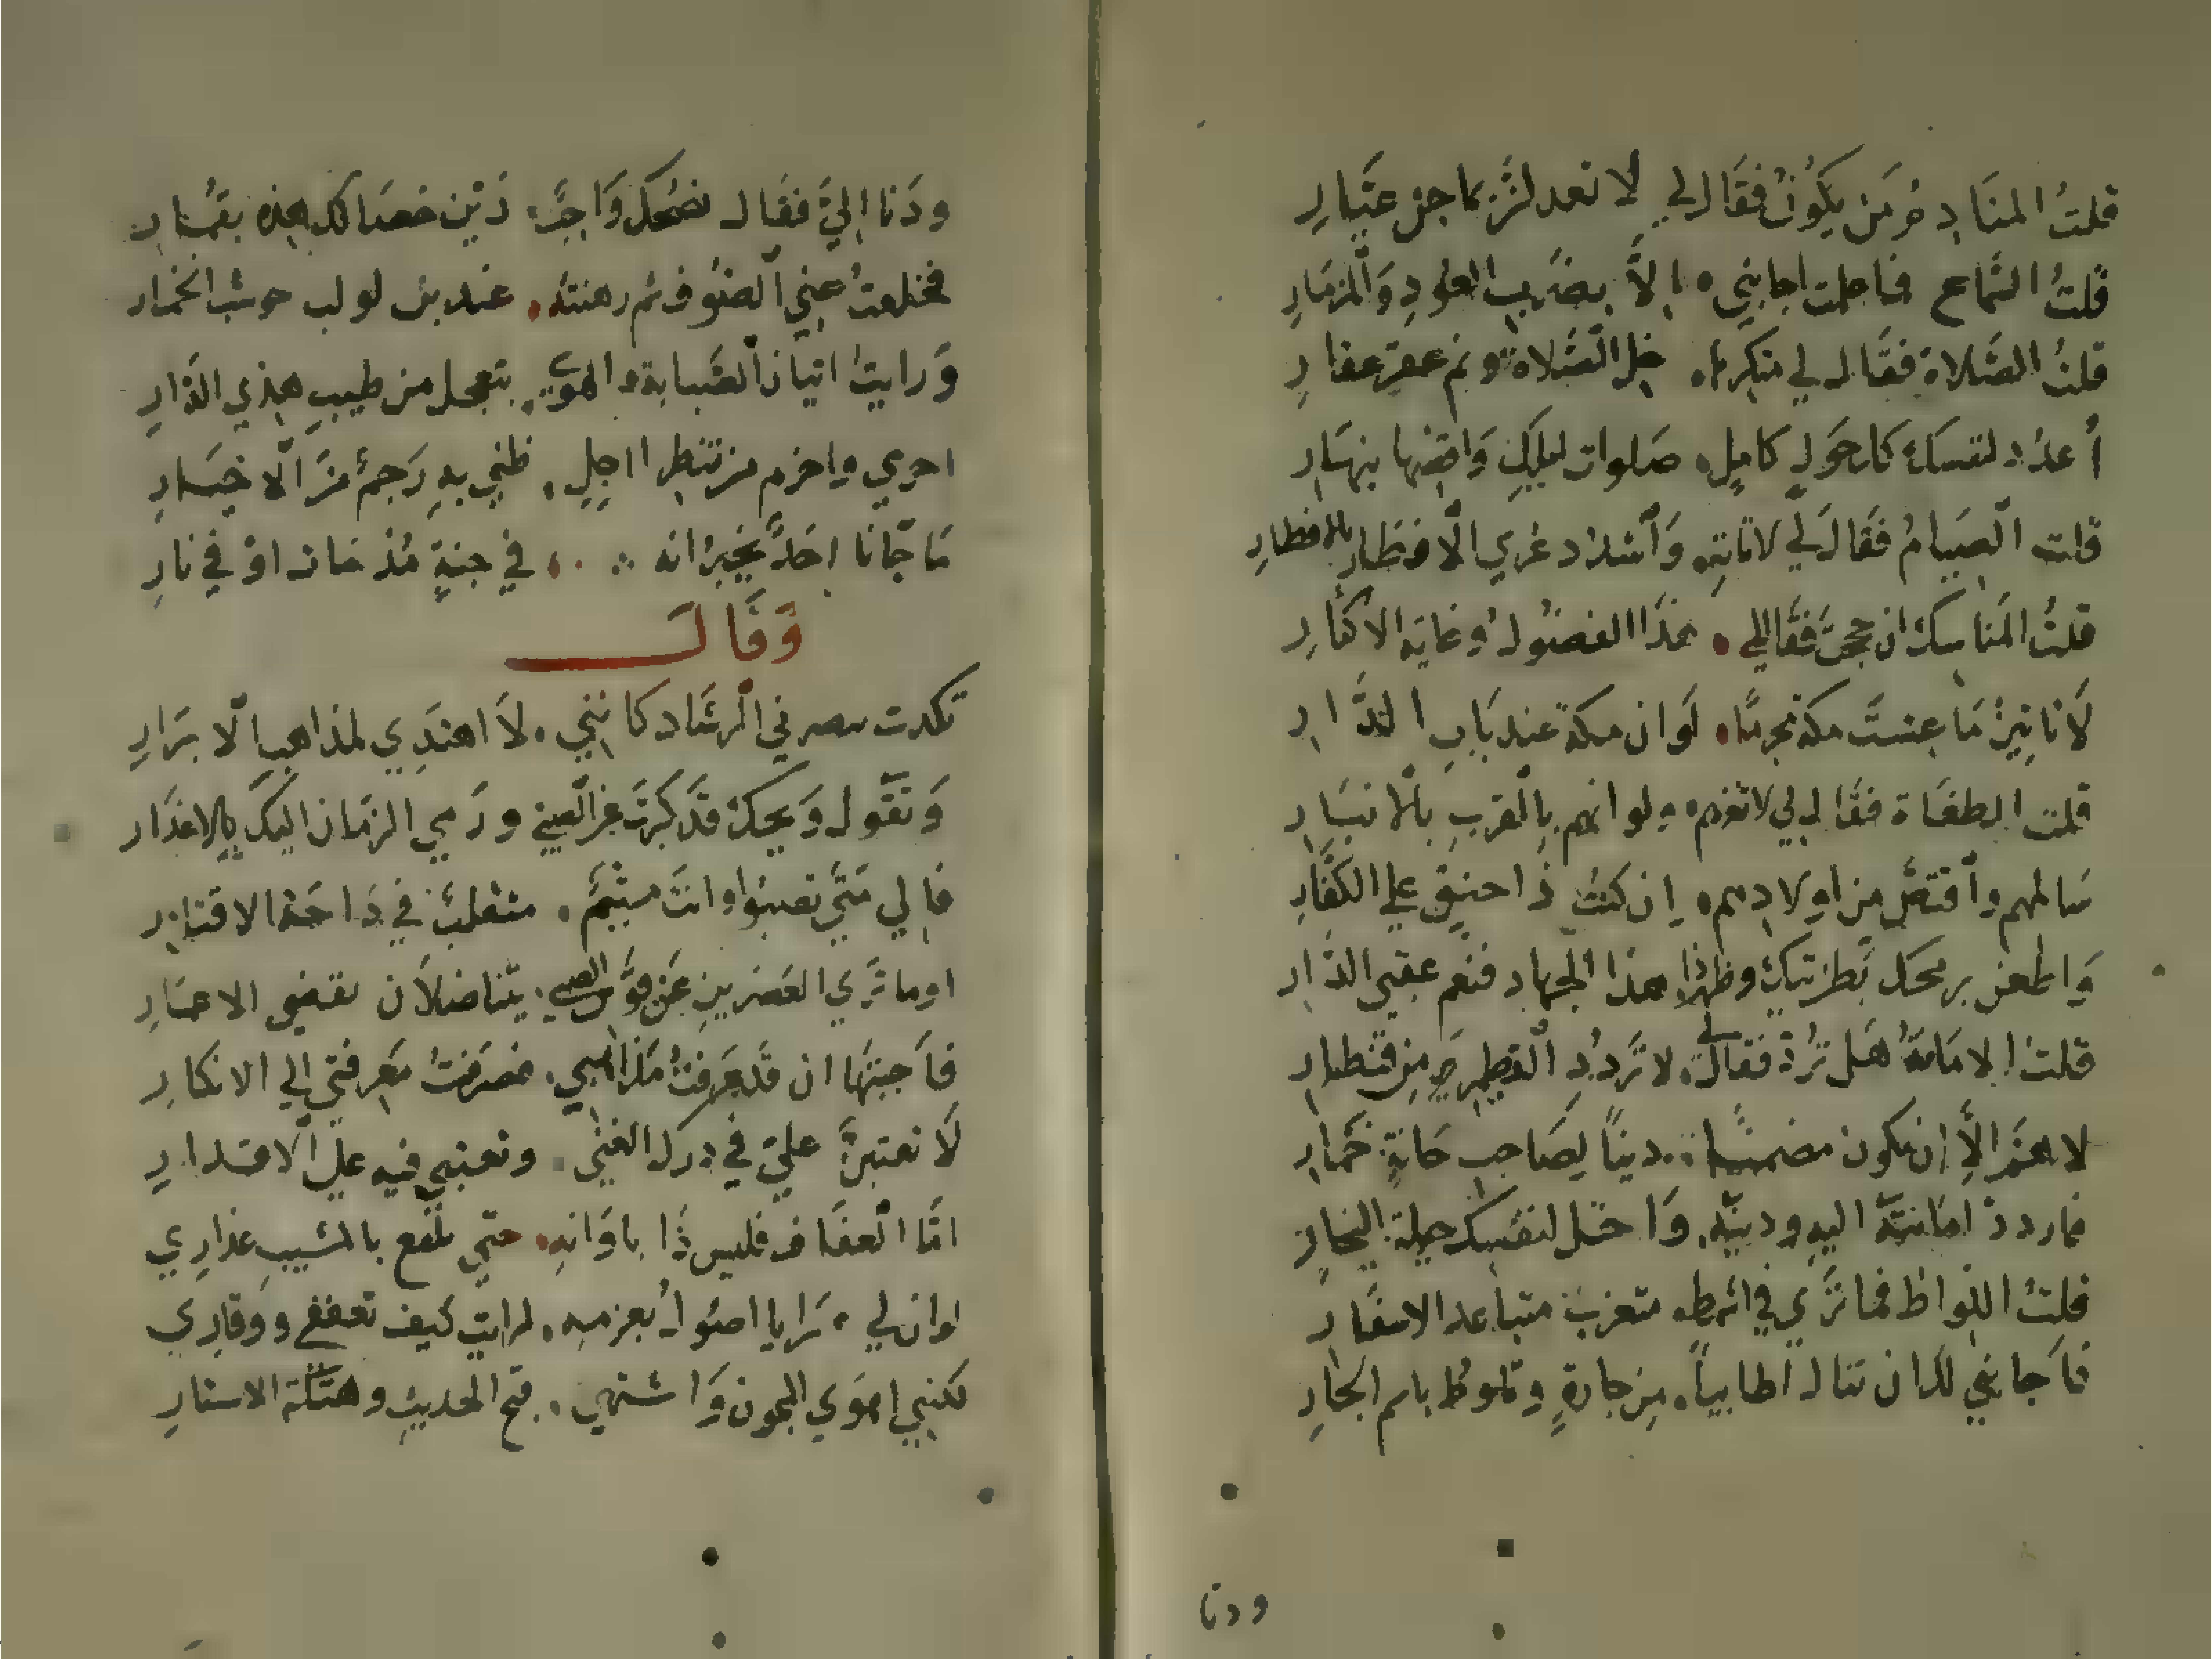 قلتُ المنَادِمُ مَن يكُونُ فقَال لي لا تعد لشرب ماجن عيَّارِ
قلتُ السَّماع فما علمت اجابني الاَّ بضَربِ العُودِ وَالمزمَارِ
قلتُ الصَّلاة فقَال لي متكرما خل الصَّلاة ونم عقر عقارِ
أُعدُد لنفسك كل حَولٍ كامِلٍ صَلوات ليلك وَاقضها بنهَارِ
قلت الصِيَامُ فقَال لي لا تاته وَاشدُد عري الافطَار بالافطارِ
قلتُ المنَاسك ان حججتَ فقَال لي هذا الفضُول وغاية الاكثارِ
لاَ تاتينَّ مَا عشتَ مكة محرمًا لَوان مكة عند بَابِ الدَّارِ
قلت الطغاة فقال لي لا تغزهم ولو انهم بالقربِ بالانبَارِ
سَالمهم واقتصَّ من اولادهم ان كنتُ ذا حنقٍ علي الكفَّارِ
وَاطعن برمحك بَطن تيك وظهر ذا هذا الجهاد فنعم عقبي الدَّارِ
قلتُ الامَانةُ هَل تُردّ فقال لي لا تَردُدِ القطميرَ من قنطارِ
لا هَمَّ الاَّ ان تكون مضمنًا دينًا لصَاحب حَانةٍ خمَّارِ
فاردد امَانتَهُ اليهِ ودينَهُ وَاحتل لنفسك حيلة التجارِ
قلتُ اللواط فما تَري في ائمطٍ متعزبٍ متباعد الاسفَارِ
فاَجابني لك ان تنال اطايبًا من جارةٍ وتلوط بابن الجارِ
ودنا
ودَنا اليَّ فقَال نصحك وَاجبٌ
فخلعتُ عني الصُوف ثم رهنتهُ عند بن لولب حوشب الخمار
وَرايت اتيان الصَبابة والهوي بتعجل من طيبِ هذي الدَّارِ
احري واحزم من تنظر اجلٍ ظني بهِ رَجمٌ منَ الاخبَارِ
مَا جَانا احَدٌ يخبرُ انه في جنةٍ مُذ مَات اوْ في نارِ
وَقَال
كاننيي لاَ اهتَدِي لمذاهب الابرَارِ
وَتقُول وَيحك قد كبرتَ عن الصبي ورَمي الزمان اليكَ بالاعذَار
فالي مَتَي تصبُوا وانتَ متيَّمٌ متقلب في رَاحَة الاقتار
اوما تَري العَصرَين عَن قوس الصبي يتناضلاَن تقضي الاعمَارِ
فاَجبتهَا ان قد عَرفتُ مذاهبي فصَرَفتُ مَعرفتي الي الانكارِ
لاَ تعتبنَّ عليَّ في درك الغني وتعتبي فيه علي الاقدارِ
امَّا العفَاف فليس ذَا باوَانهِ حتي تلفع بالمشيب عذارِي
اوان لي مَرايا اصُول بعزمه لرايت كيف تعففي ووقارِي
لكنني اهوَي المجون وَاشتهي فتح الحديث وهتكة الاستارِ